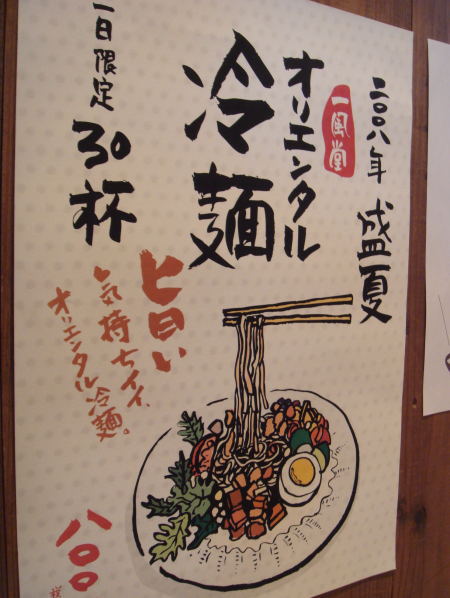 二〇〇八年 盛夏
一風堂
オリエンタル
冷麺
一日限定
30杯
旨い
気持ちイイ、
オリエンタル冷麺。
八〇〇